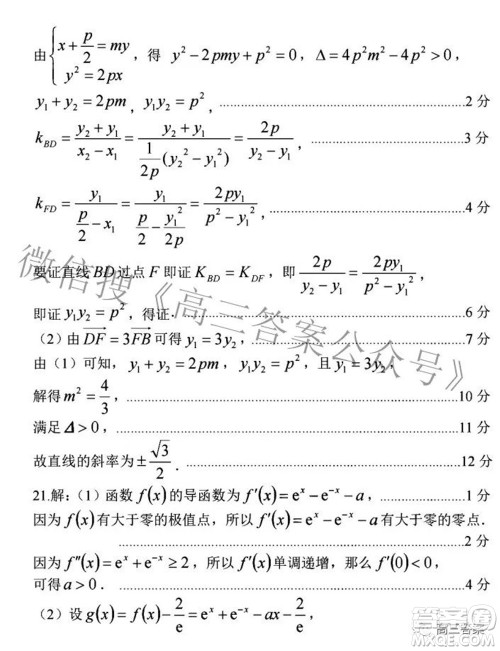 由{x + p/2 = my, y² = 2px}, 得 y² − 2pmy + p² = 0, Δ = 4p²m² − 4p² > 0,
y₁ + y₂ = 2pm, y₁y₂ = p², ……2 分
k_BD = (y₂ + y₁)/(x₂ − x₁) = (y₂ + y₁)/((1/2p)(y₂² − y₁²)) = 2p/(y₂ − y₁) ……3 分
k_FD = y₁/(p/2 − x₁) = y₁/(p/2 − y₁²/2p) = 2py₁/(p² − y₁²), ……4 分
要证直线 BD 过点 F 即证 K_BD = K_DF, 即 2p/(y₂ − y₁) = 2py₁/(p² − y₁²),
即证 y₁y₂ = p², 得证. ……6 分
(2)由 DF⃗ = 3FB⃗ 可得 y₁ = 3y₂, ……7 分
由(1)可知, y₁ + y₂ = 2pm, y₁y₂ = p², 且 y₁ = 3y₂,
解得 m² = 4/3, ……10 分
满足 Δ > 0, ……11 分
故直线的斜率为 ± √3/2. ……12 分
21.解:(1)函数 f(x) 的导函数为 f′(x) = eˣ − e⁻ˣ − a, ……1 分
因为 f(x) 有大于零的极值点, 所以 f′(x) 有大于零的零点.
……2 分
因为 f″(x) = eˣ + e⁻ˣ ≥ 2, 所以 f′(x) 单调递增, 那么 f′(0) < 0,
可得 a > 0. ……4 分
(2)设 g(x) = f(x) − 2/e = eˣ + e⁻ˣ − ax − 2/e,
微信搜《高三答案公众号》
高三答案